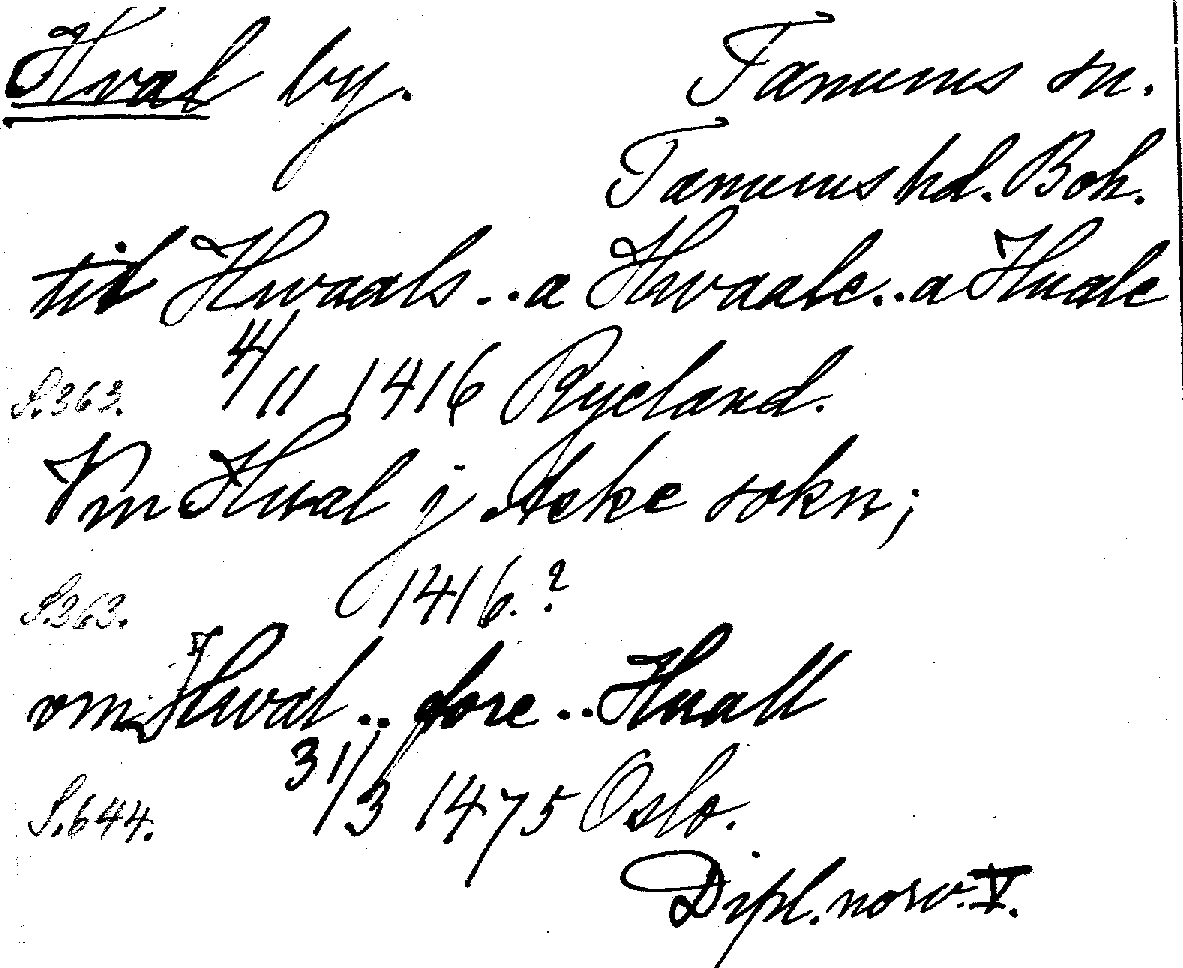 Hval by. Tanums sn.
Tanums hd. Boh.
till Hwaals .. a Hwaale .. a Huale
S.363. 4/11 1416 Rycland.
Vm Hwal j Aeke sokn;
S.363. 1416.?
om Hwal .. fore .. Huall
S.644. 31/3 1475 Oslo.
Dipl. norv. V.